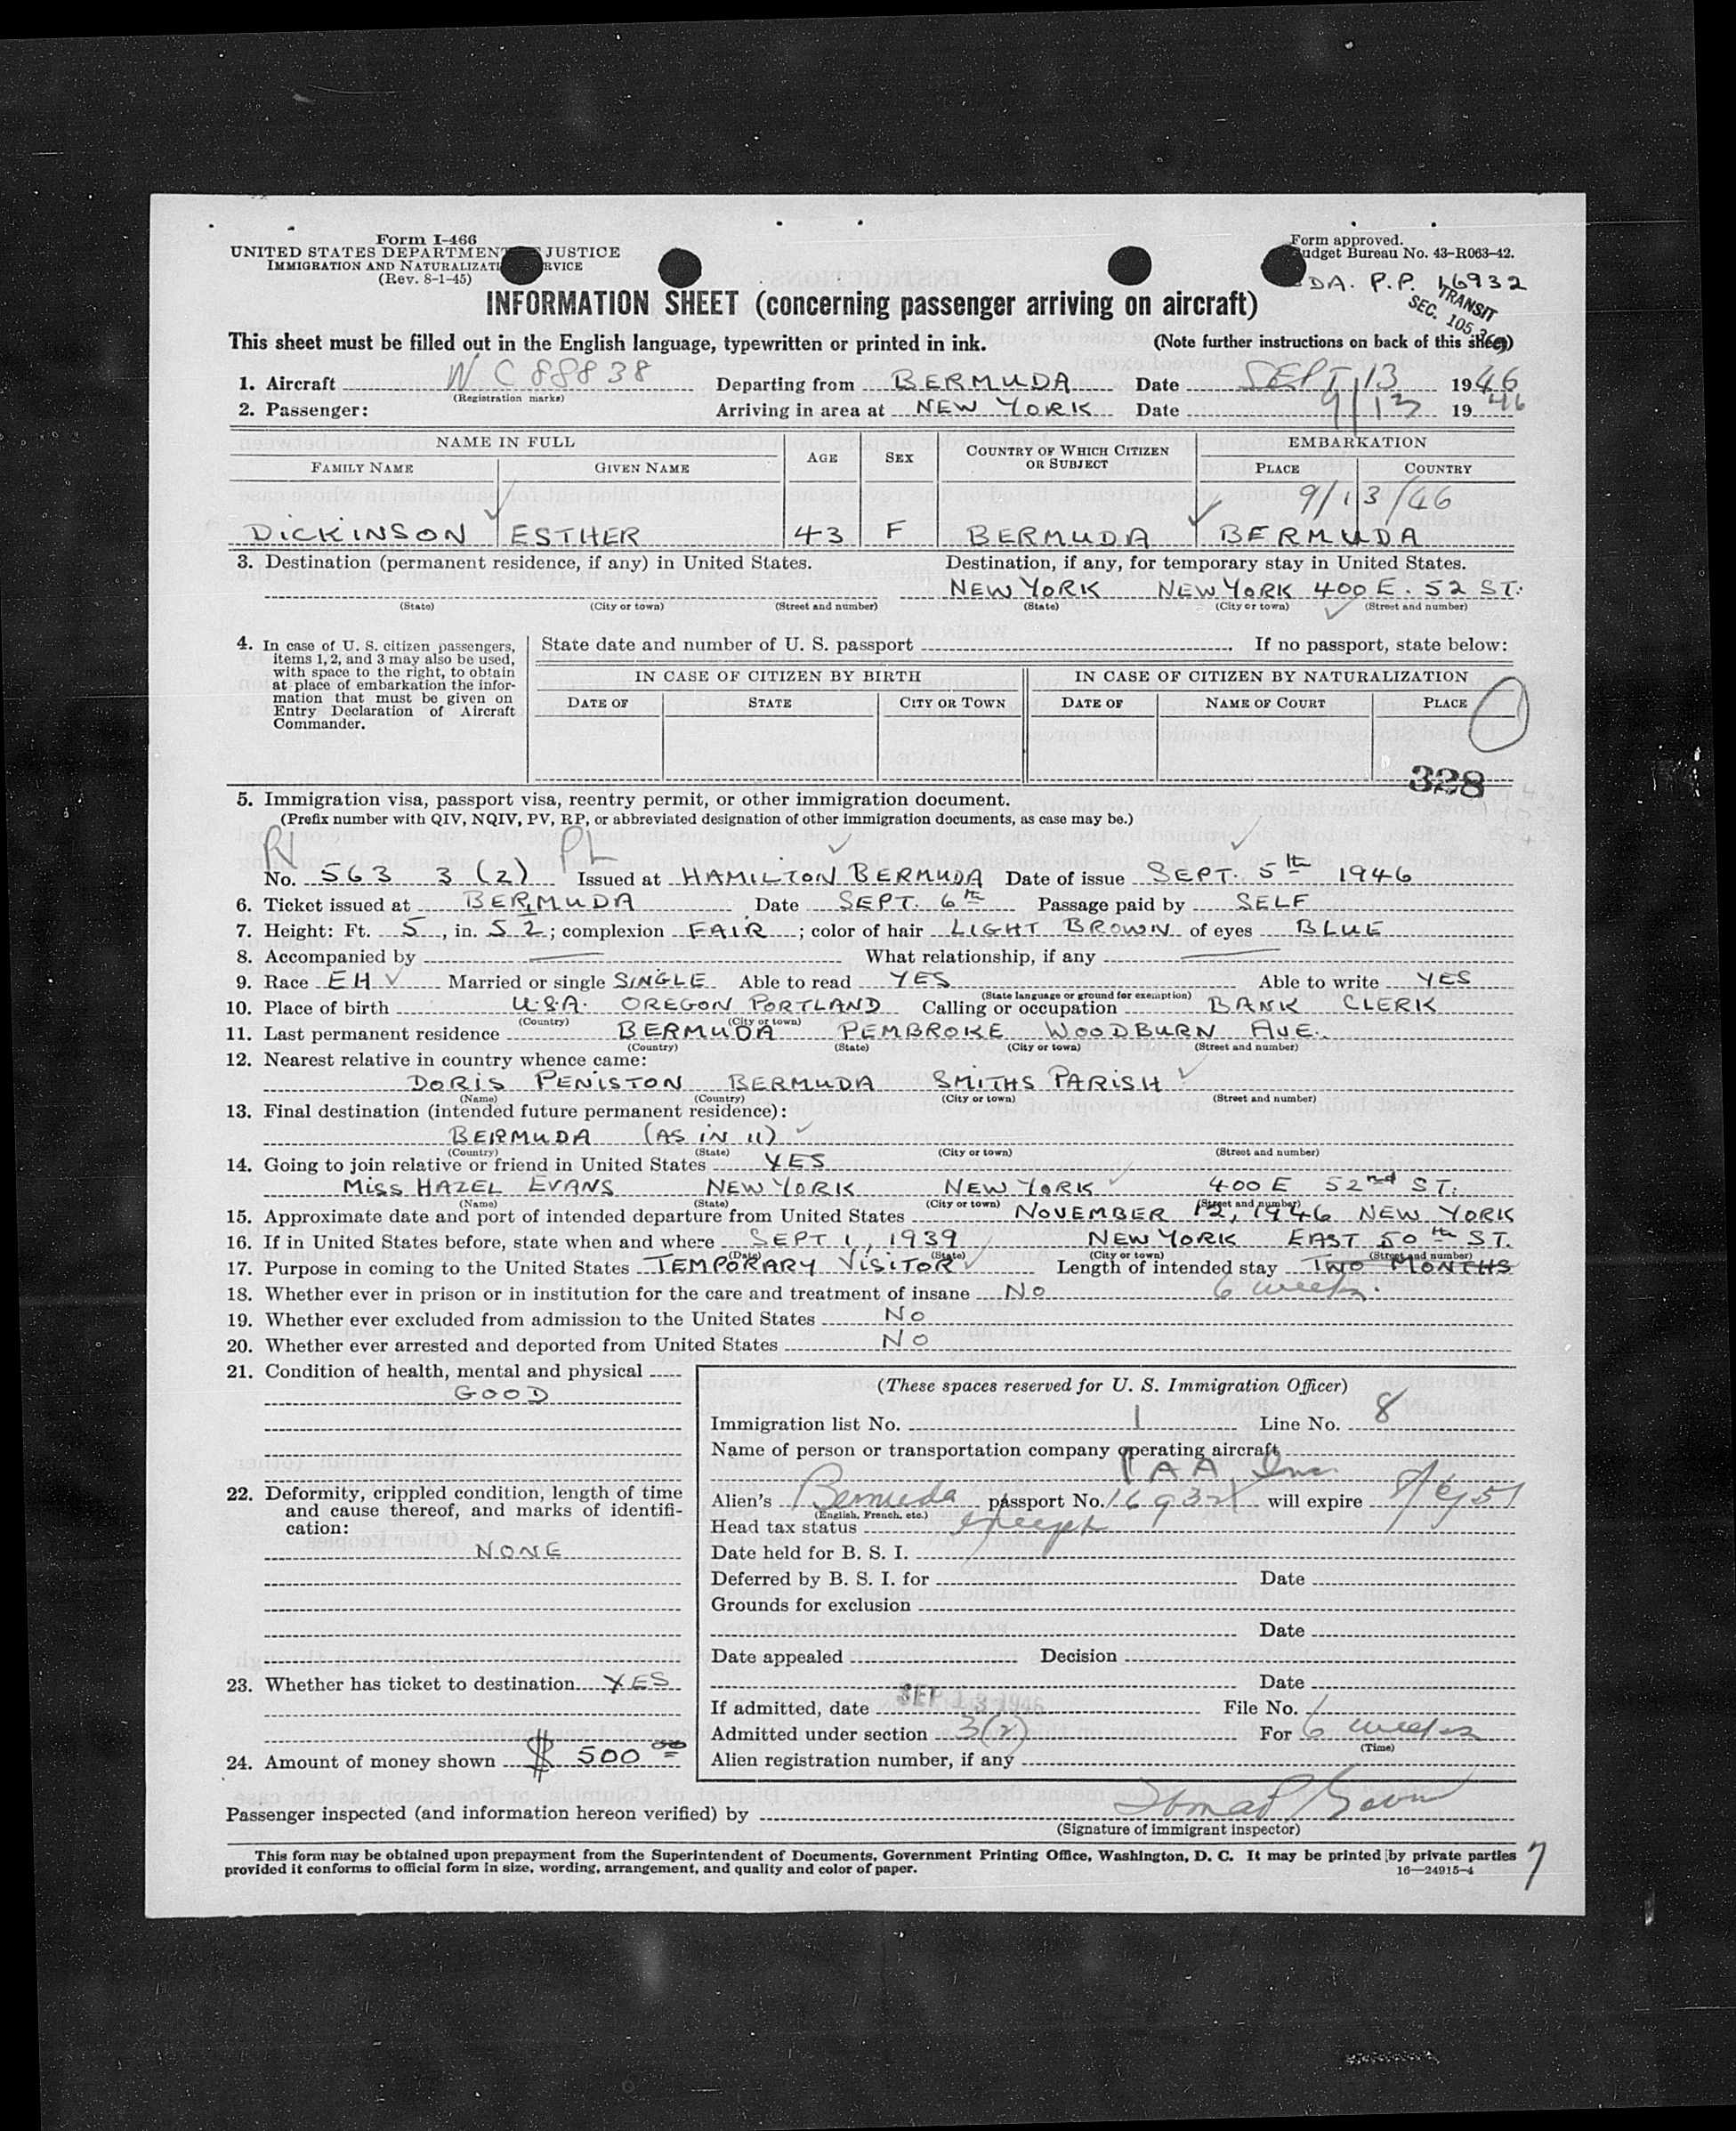 Form I-466
UNITED STATES DEPARTMENT JUSTICE
IMMIGRATION AND
(Rev. 8-1-45)
Form approved.
Budget Bureau No. 43-R063-42.
DA. P.P. 16932
TRANSIT
SEC. 105.3
INFORMATION SHEET (concerning passenger arriving on aircraft)
This sheet must be filled out in the English language, typewritten or printed in ink. (Note further instructions on back of this sheet)
1. Aircraft NC88838 Departing from BERMUDA Date SEPT 13 1946
(Registration marks)
2. Passenger: Arriving in area at NEW YORK Date 9/13 1946
NAME IN FULL AGE SEX COUNTRY OF WHICH CITIZEN OR SUBJECT EMBARKATION
FAMILY NAME GIVEN NAME PLACE COUNTRY
9/13/46
DICKINSON ESTHER 43 F BERMUDA BERMUDA
3. Destination (permanent residence, if any) in United States. Destination, if any, for temporary stay in United States.
NEW YORK NEW YORK 400 E. 52 ST.
(State) (City or town) (Street and number) (State) (City or town) (Street and number)
4. In case of U. S. citizen passengers, items 1, 2, and 3 may also be used, with space to the right, to obtain at place of embarkation the information that must be given on Entry Declaration of Aircraft Commander.
State date and number of U. S. passport . If no passport, state below:
IN CASE OF CITIZEN BY BIRTH IN CASE OF CITIZEN BY NATURALIZATION
DATE OF STATE CITY OR TOWN DATE OF NAME OF COURT PLACE
328
5. Immigration visa, passport visa, reentry permit, or other immigration document.
(Prefix number with QIV, NQIV, PV, RP, or abbreviated designation of other immigration documents, as case may be.)
No. 563 3 (2) Issued at HAMILTON BERMUDA Date of issue SEPT. 5th 1946
6. Ticket issued at BERMUDA Date SEPT. 6th Passage paid by SELF
7. Height: Ft. 5, in. 5 2; complexion FAIR; color of hair LIGHT BROWN of eyes BLUE
8. Accompanied by — What relationship, if any —
9. Race EH Married or single SINGLE Able to read YES Able to write YES
(State language or ground for exemption)
10. Place of birth U.S.A. OREGON PORTLAND Calling or occupation BANK CLERK
(Country) (City or town)
11. Last permanent residence BERMUDA PEMBROKE WOODBURN AVE.
(Country) (State) (City or town) (Street and number)
12. Nearest relative in country whence came:
DORIS PENISTON BERMUDA SMITHS PARISH
(Name) (Country) (City or town) (Street and number)
13. Final destination (intended future permanent residence):
BERMUDA (AS IN 11)
(Country) (State) (City or town) (Street and number)
14. Going to join relative or friend in United States YES
MISS HAZEL EVANS NEW YORK NEW YORK 400 E 52nd ST.
(Name) (State) (City or town) (Street and number)
15. Approximate date and port of intended departure from United States NOVEMBER 12, 1946 NEW YORK
16. If in United States before, state when and where SEPT 1, 1939 NEW YORK EAST 50th ST.
(Date) (State) (City or town) (Street and number)
17. Purpose in coming to the United States TEMPORARY VISITOR Length of intended stay TWO MONTHS
18. Whether ever in prison or in institution for the care and treatment of insane NO 6 weeks.
19. Whether ever excluded from admission to the United States NO
20. Whether ever arrested and deported from United States NO
21. Condition of health, mental and physical
GOOD
22. Deformity, crippled condition, length of time and cause thereof, and marks of identification:
NONE
23. Whether has ticket to destination YES
24. Amount of money shown $ 500 00
(These spaces reserved for U. S. Immigration Officer)
Immigration list No. 1 Line No. 8
Name of person or transportation company operating aircraft
PAA, Inc.
Alien's Bermuda passport No. 16932 will expire 8/6/51
(English, French, etc.)
Head tax status exempt
Date held for B. S. I.
Deferred by B. S. I. for Date
Grounds for exclusion
Date
Date appealed Decision
Date
If admitted, date SEP 13 1946 File No.
Admitted under section 3(2) For 6 weeks
(Time)
Alien registration number, if any
Passenger inspected (and information hereon verified) by
(Signature of immigrant inspector)
This form may be obtained upon prepayment from the Superintendent of Documents, Government Printing Office, Washington, D. C. It may be printed by private parties
provided it conforms to official form in size, wording, arrangement, and quality and color of paper. 16—24915-4
7